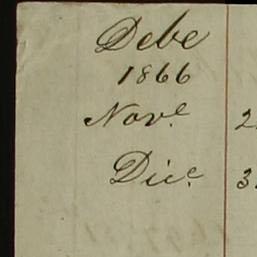 Debe
1866
Nov.e 2
Dic.e 3